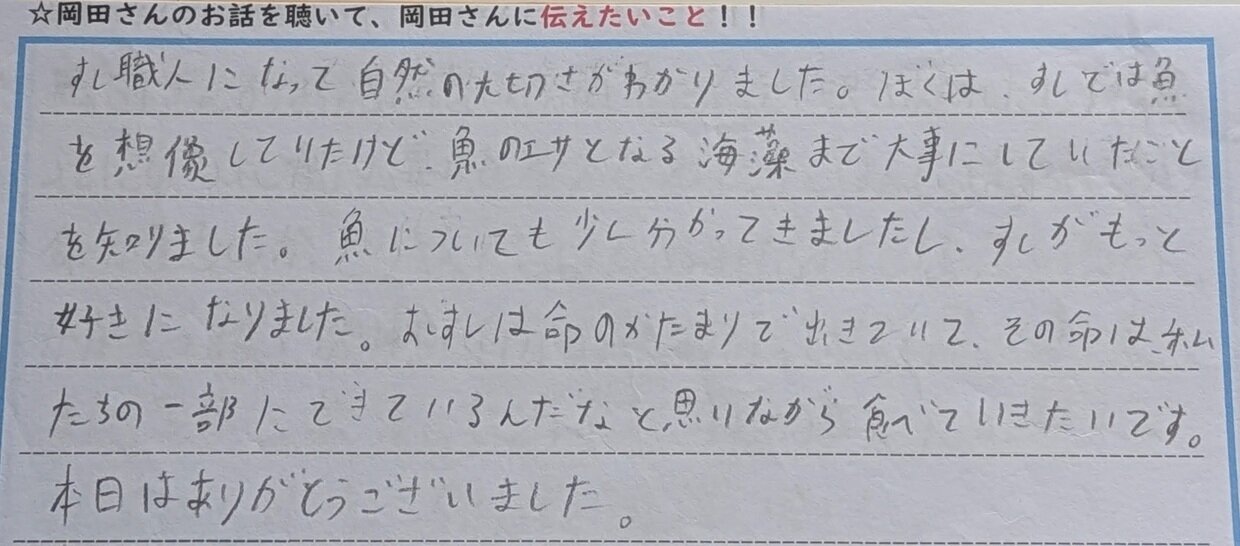 ☆岡田さんのお話を聴いて、岡田さんに伝えたいこと！！
すし職人になって自然の大切さがわかりました。ぼくは、すしでは魚
を想像していたけど、魚のエサとなる海藻まで大事にしていたこと
を知りました。魚についても少し分かってきましたし、すしがもっと
好きになりました。おすしは命のかたまりで出きていて、その命は、私
たちの一部にできているんだなと思いながら食べていきたいです。
本日はありがとうございました。